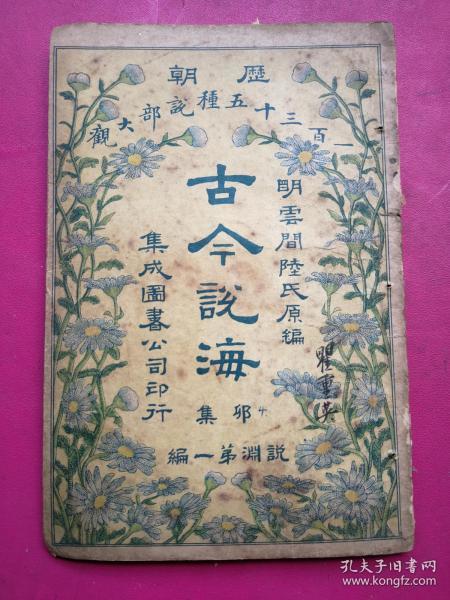 歷朝
一百三十五種說部大觀
明雲間陸氏原編
古今說海
卯集
說淵第一編
集成圖書公司印行
孔夫子旧书网
www.kongfz.com